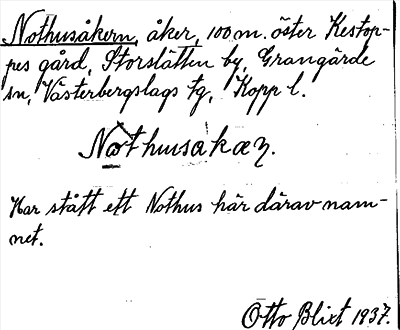 Nothusåkern, åker, 100 m. öster Kestop-
pes gård, Storslätten by, Grangärde
sn, Västerbergslags tg, Kopp l.
Nothusakæn.
Har stått ett Nothus här därav nam-
net.
Otto Blixt 1937.